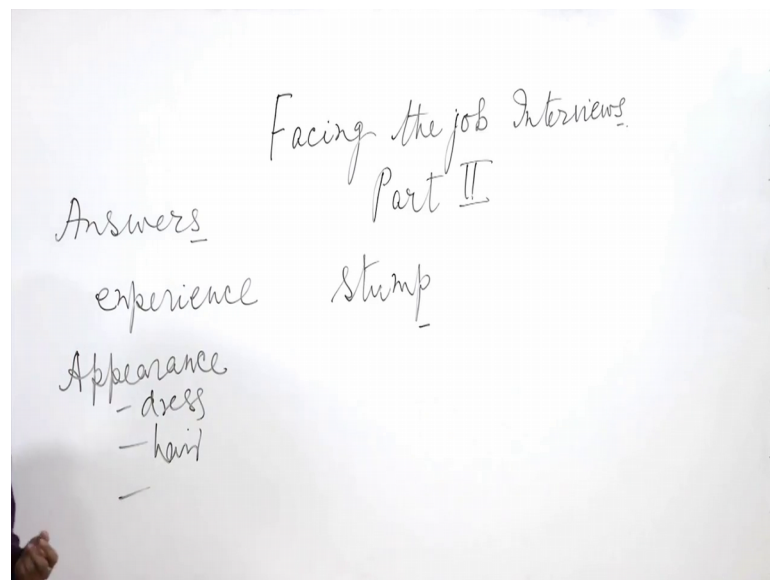 Facing the job Interviews
Part II
Answers
experience stump
Appearance
- dress
- hair
-